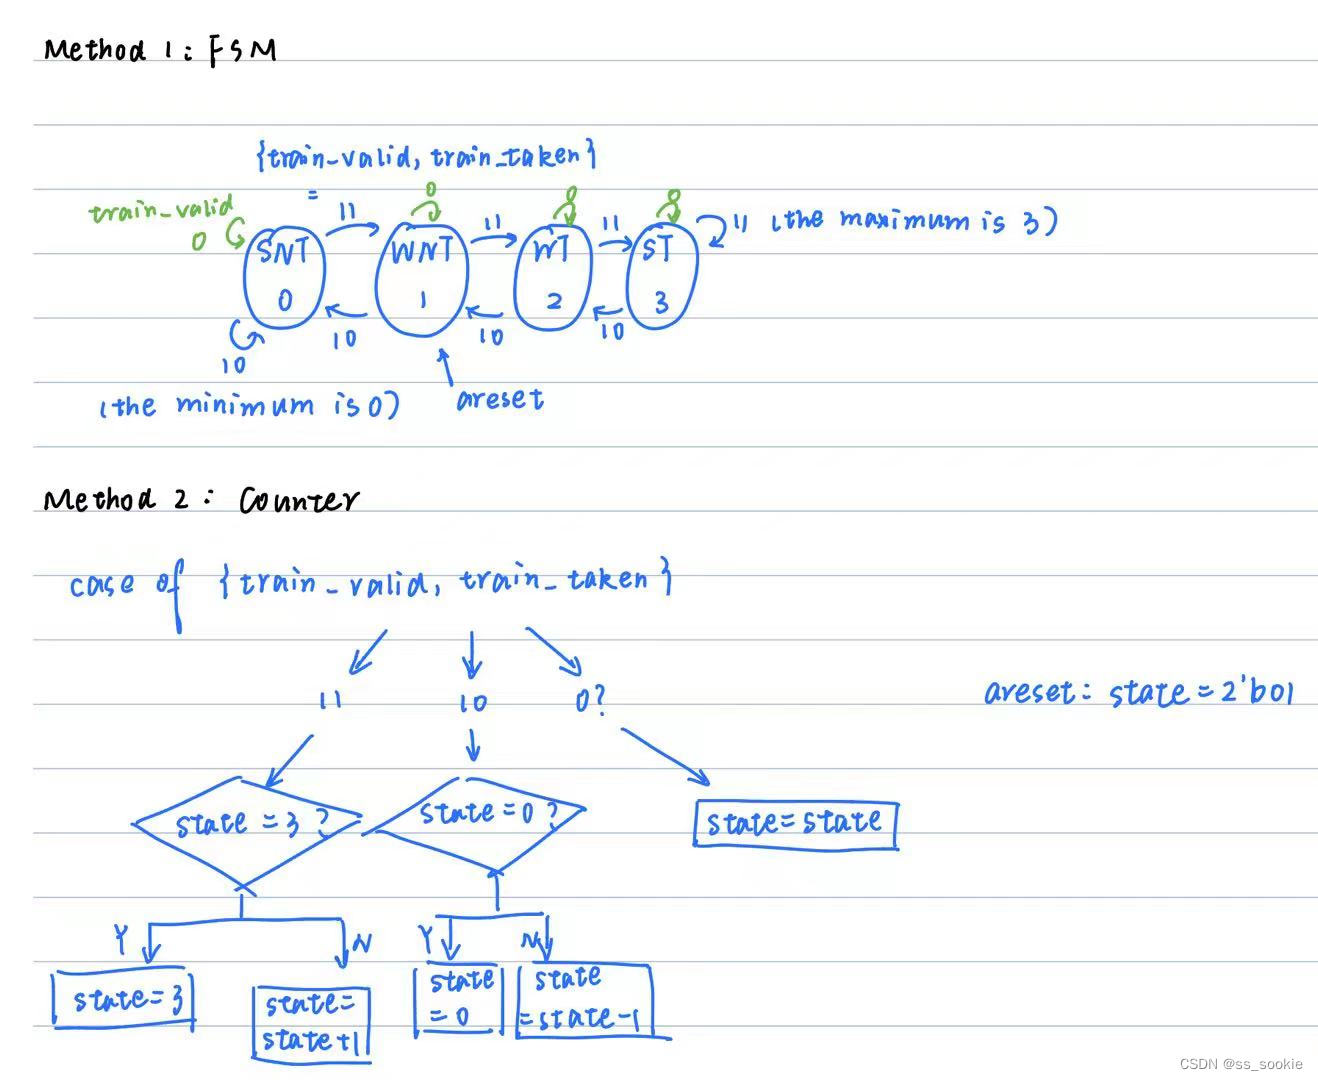 Method 1: FSM
{train_valid, train_taken}
=
train_valid
0
11
0
11
0
11
0
11 (the maximum is 3)
SNT
0
WNT
1
WT
2
ST
3
10
10
10
10
(the minimum is 0)
areset
Method 2: Counter
case of {train_valid, train_taken}
11
10
0?
areset: state = 2'b01
state = 3 ?
state = 0 ?
state = state
Y
N
Y
N
state = 3
state =
state +1
state
= 0
state
= state -1
CSDN @ss_sookie